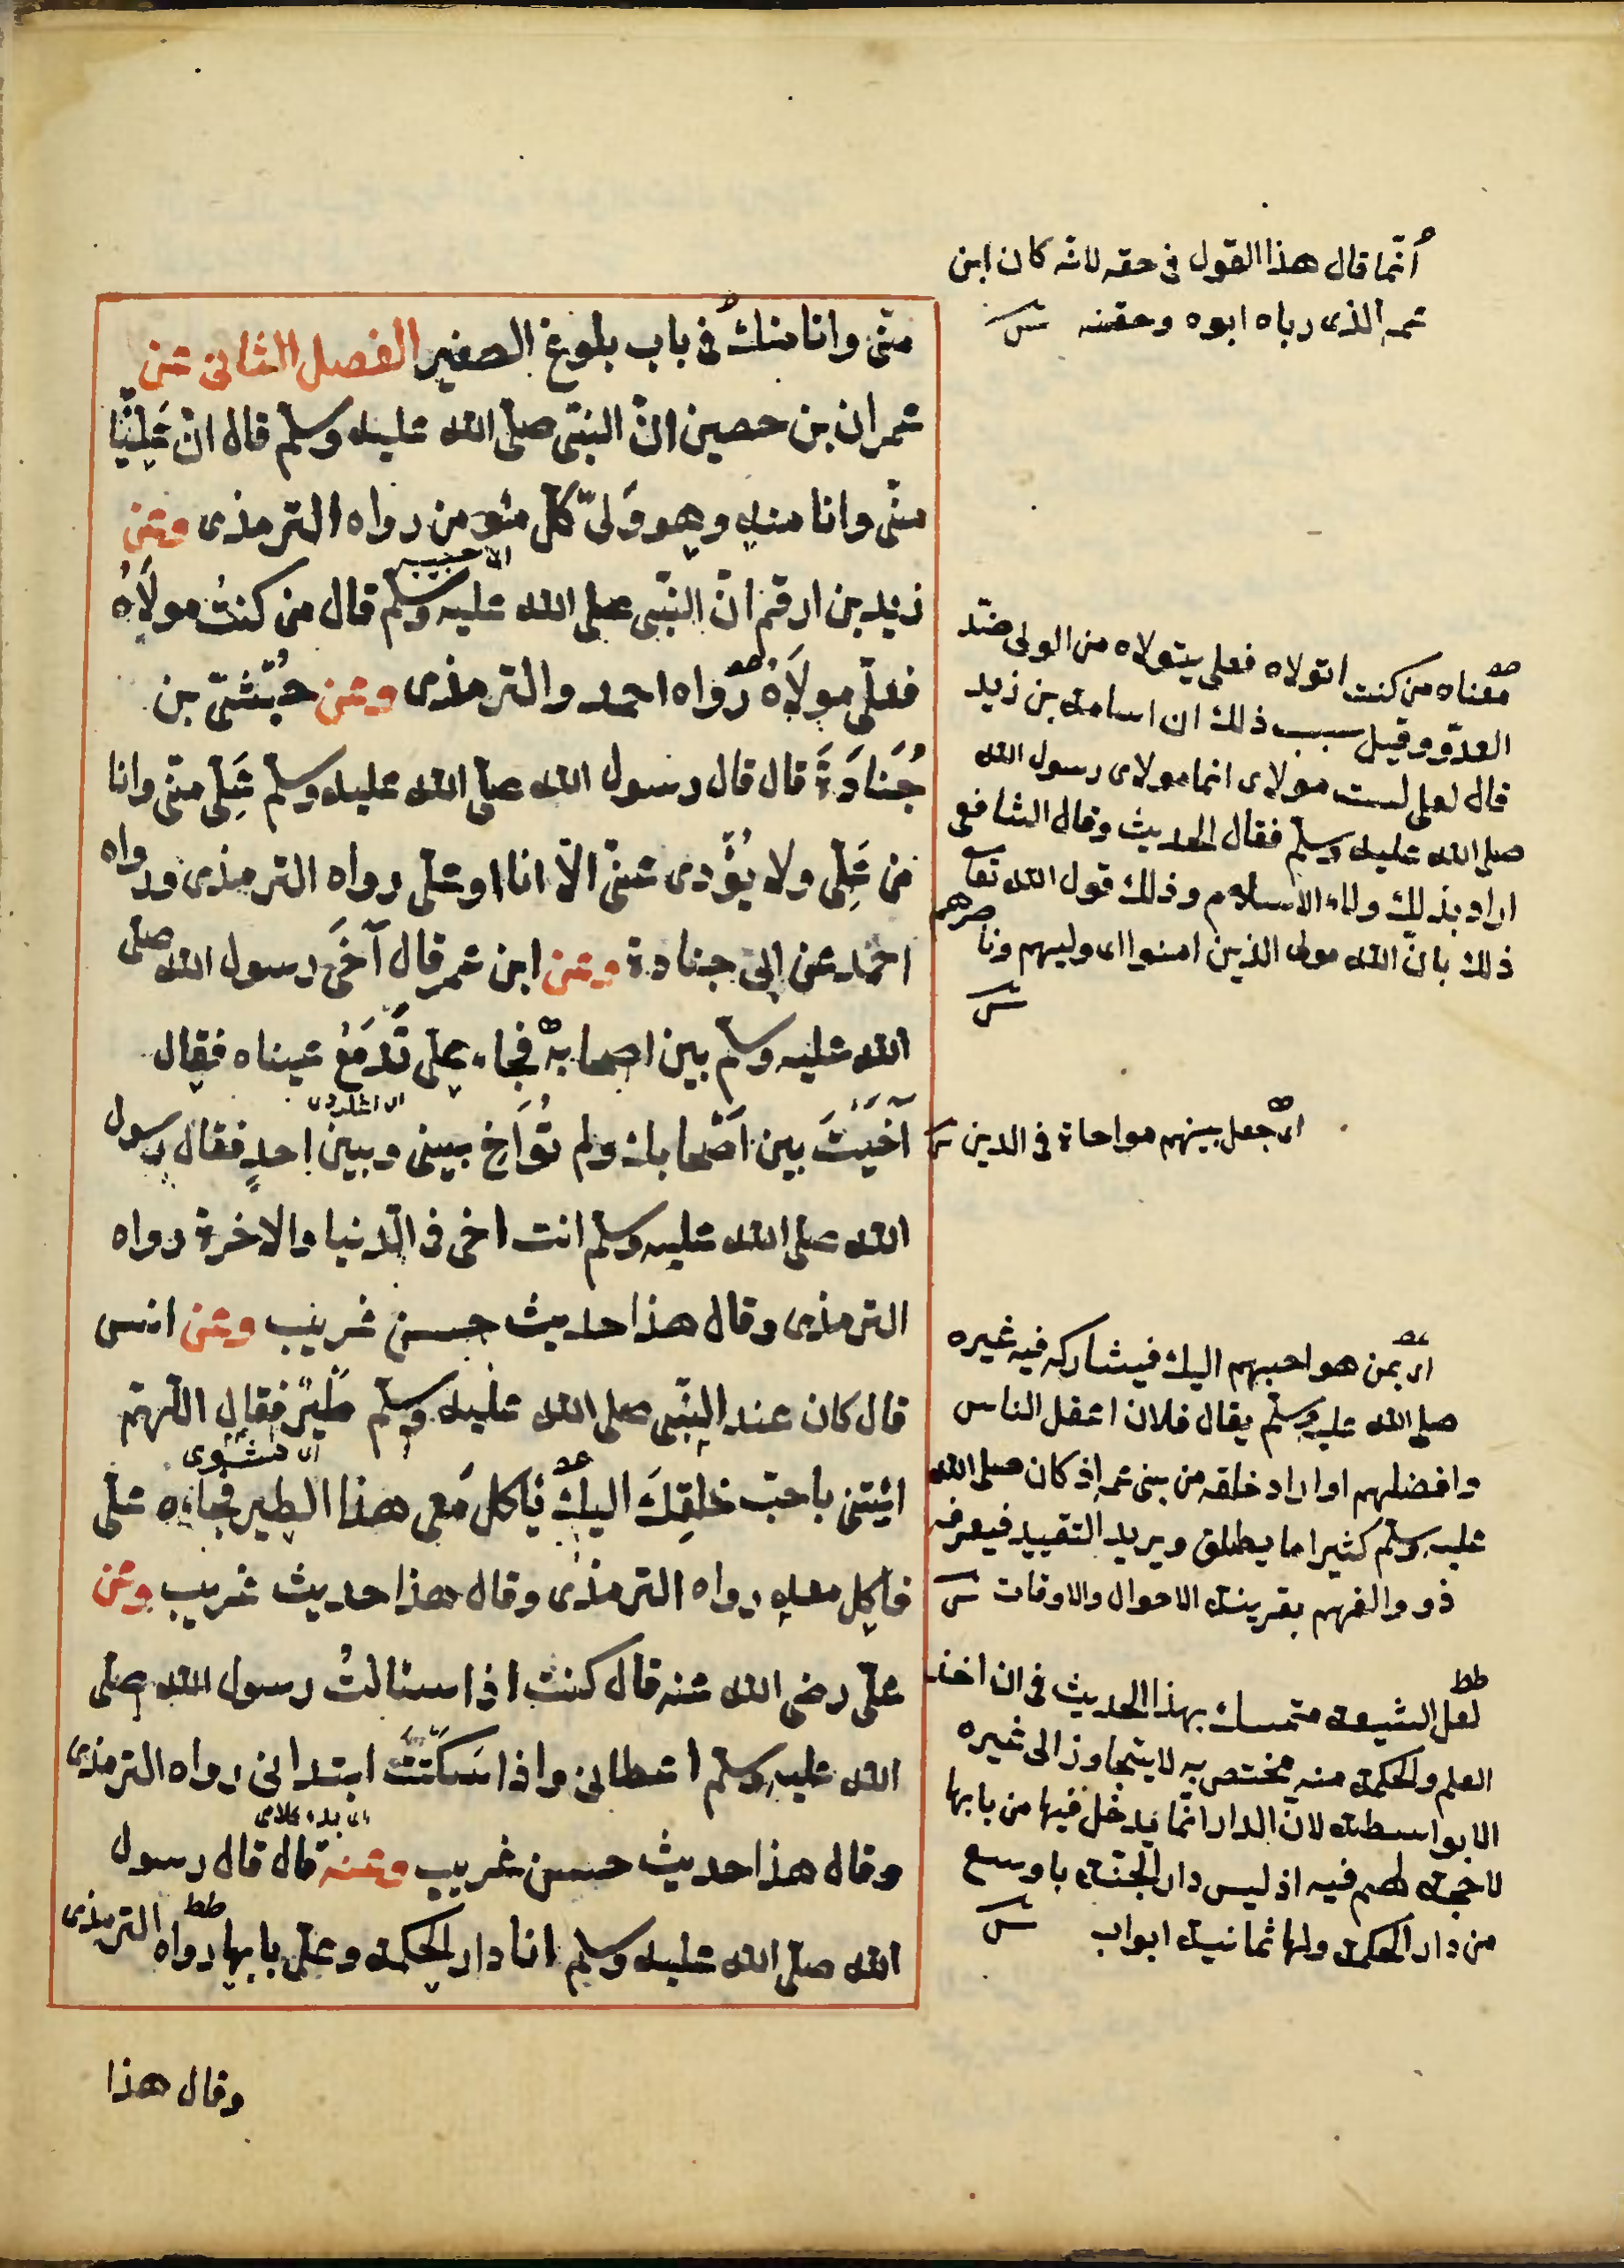 منّى وانا منك فى باب بلوغ الصغير الفصل الثانى عن
عمران بن حصين انّ النبّى صلى الله عليه وسلم قال انّ عَلِيًّا
منّى وانا منه وهو وَلىّ كلّ مؤمن رواه الترمذى وعن
زيد بن ارقم انّ النبّى صلى الله عليه وسلم قال من كنتُ مولَاهُ
فعلّى مولَاهُ رواه احمد والترمذى وعن حُبْشىّ بن
جُنَادَةَ قال قال رسول الله صلى الله عليه وسلم عَلِىّ منّى وانا
من عَلِىّ ولا يُؤَدى عنىّ الّا انا او علىّ رواه الترمذى ورواه
احمد عن ابى جنادة وعن ابن عمر قال آخَى رسول الله صلى
الله عليه وسلم بين اصحابه فجاء على تَدمَعُ عيناه فقال
آخَيْتَ بين اَصْحابك ولم تُوَاخِ بينى وبين احدٍ فقال رسول
الله صلى الله عليه وسلم انت اخى فى الدّنيا والاخرة رواه
الترمذى وقال هذا حديث حسن غريب وعن انس
قال كان عند النبّى صلى الله عليه وسلم طَيْرٌ فقال اللّهمّ
ائيتنى باحبّ خلقِكَ اليك يأكل مَعى هذا الطير فجاءه علىّ
اى مشوى
فاكل معه رواه الترمذى وقال هذا حديث غريب وعن
علىّ رضى الله عنه قال كنت اذا سئالتُ رسول الله صلى
الله عليه وسلم اعطانى واذا سَكَتتُ ابتدانى رواه الترمذى
وقال هذا حديث حسن غريب وعنه قال قال رسول
الله صلى الله عليه وسلم انا دار الحكمة وعلىّ بابها رواه الترمذى
وقال هذا
انّما قال هذا القول فى حقه لانّه كان ابن
عمه الذى رباه ابوه وحقنه
معناه من كنت اتولاه فعلى يتولاه من الولى ضدّ
العدوّ وقيل سبب ذلك ان اسامة بن زيد
قال لعلى لست مولاى انما مولاى رسول الله
صلى الله عليه وسلم فقال الحديث وقال الشافعى
اراد بذلك ولاء الاسلام وذلك قول الله تعا
ذلك بانّ الله مولى الذين امنوا اى وليهم وناصرهم
اى جعل بينهم مواحاة فى الدين
اى بمن هو احبهم اليك فيشاركه فيه غيره
صلى الله عليه وسلم يقال فلان اعقل الناس
وافضلهم او اراد خلقه من بنى عمه اذ كان صلى الله
عليه وسلم كثيرا ما يطلق ويريد التقييد فيعرفه
ذووا الفهم بقرينة الاحوال والاوقات
لعل الشيعة متمسك بهذا الحديث فى ان اخذ
العلم والحكمة منه مختص به لا يتجاوز الى غيره
الا بواسطته لانّ الدار انّما يدخل فيها من بابها
لا حجة لهم فيه اذ ليس دار الجنّة باوسع
من دار الحكمة ولها ثمانية ابواب